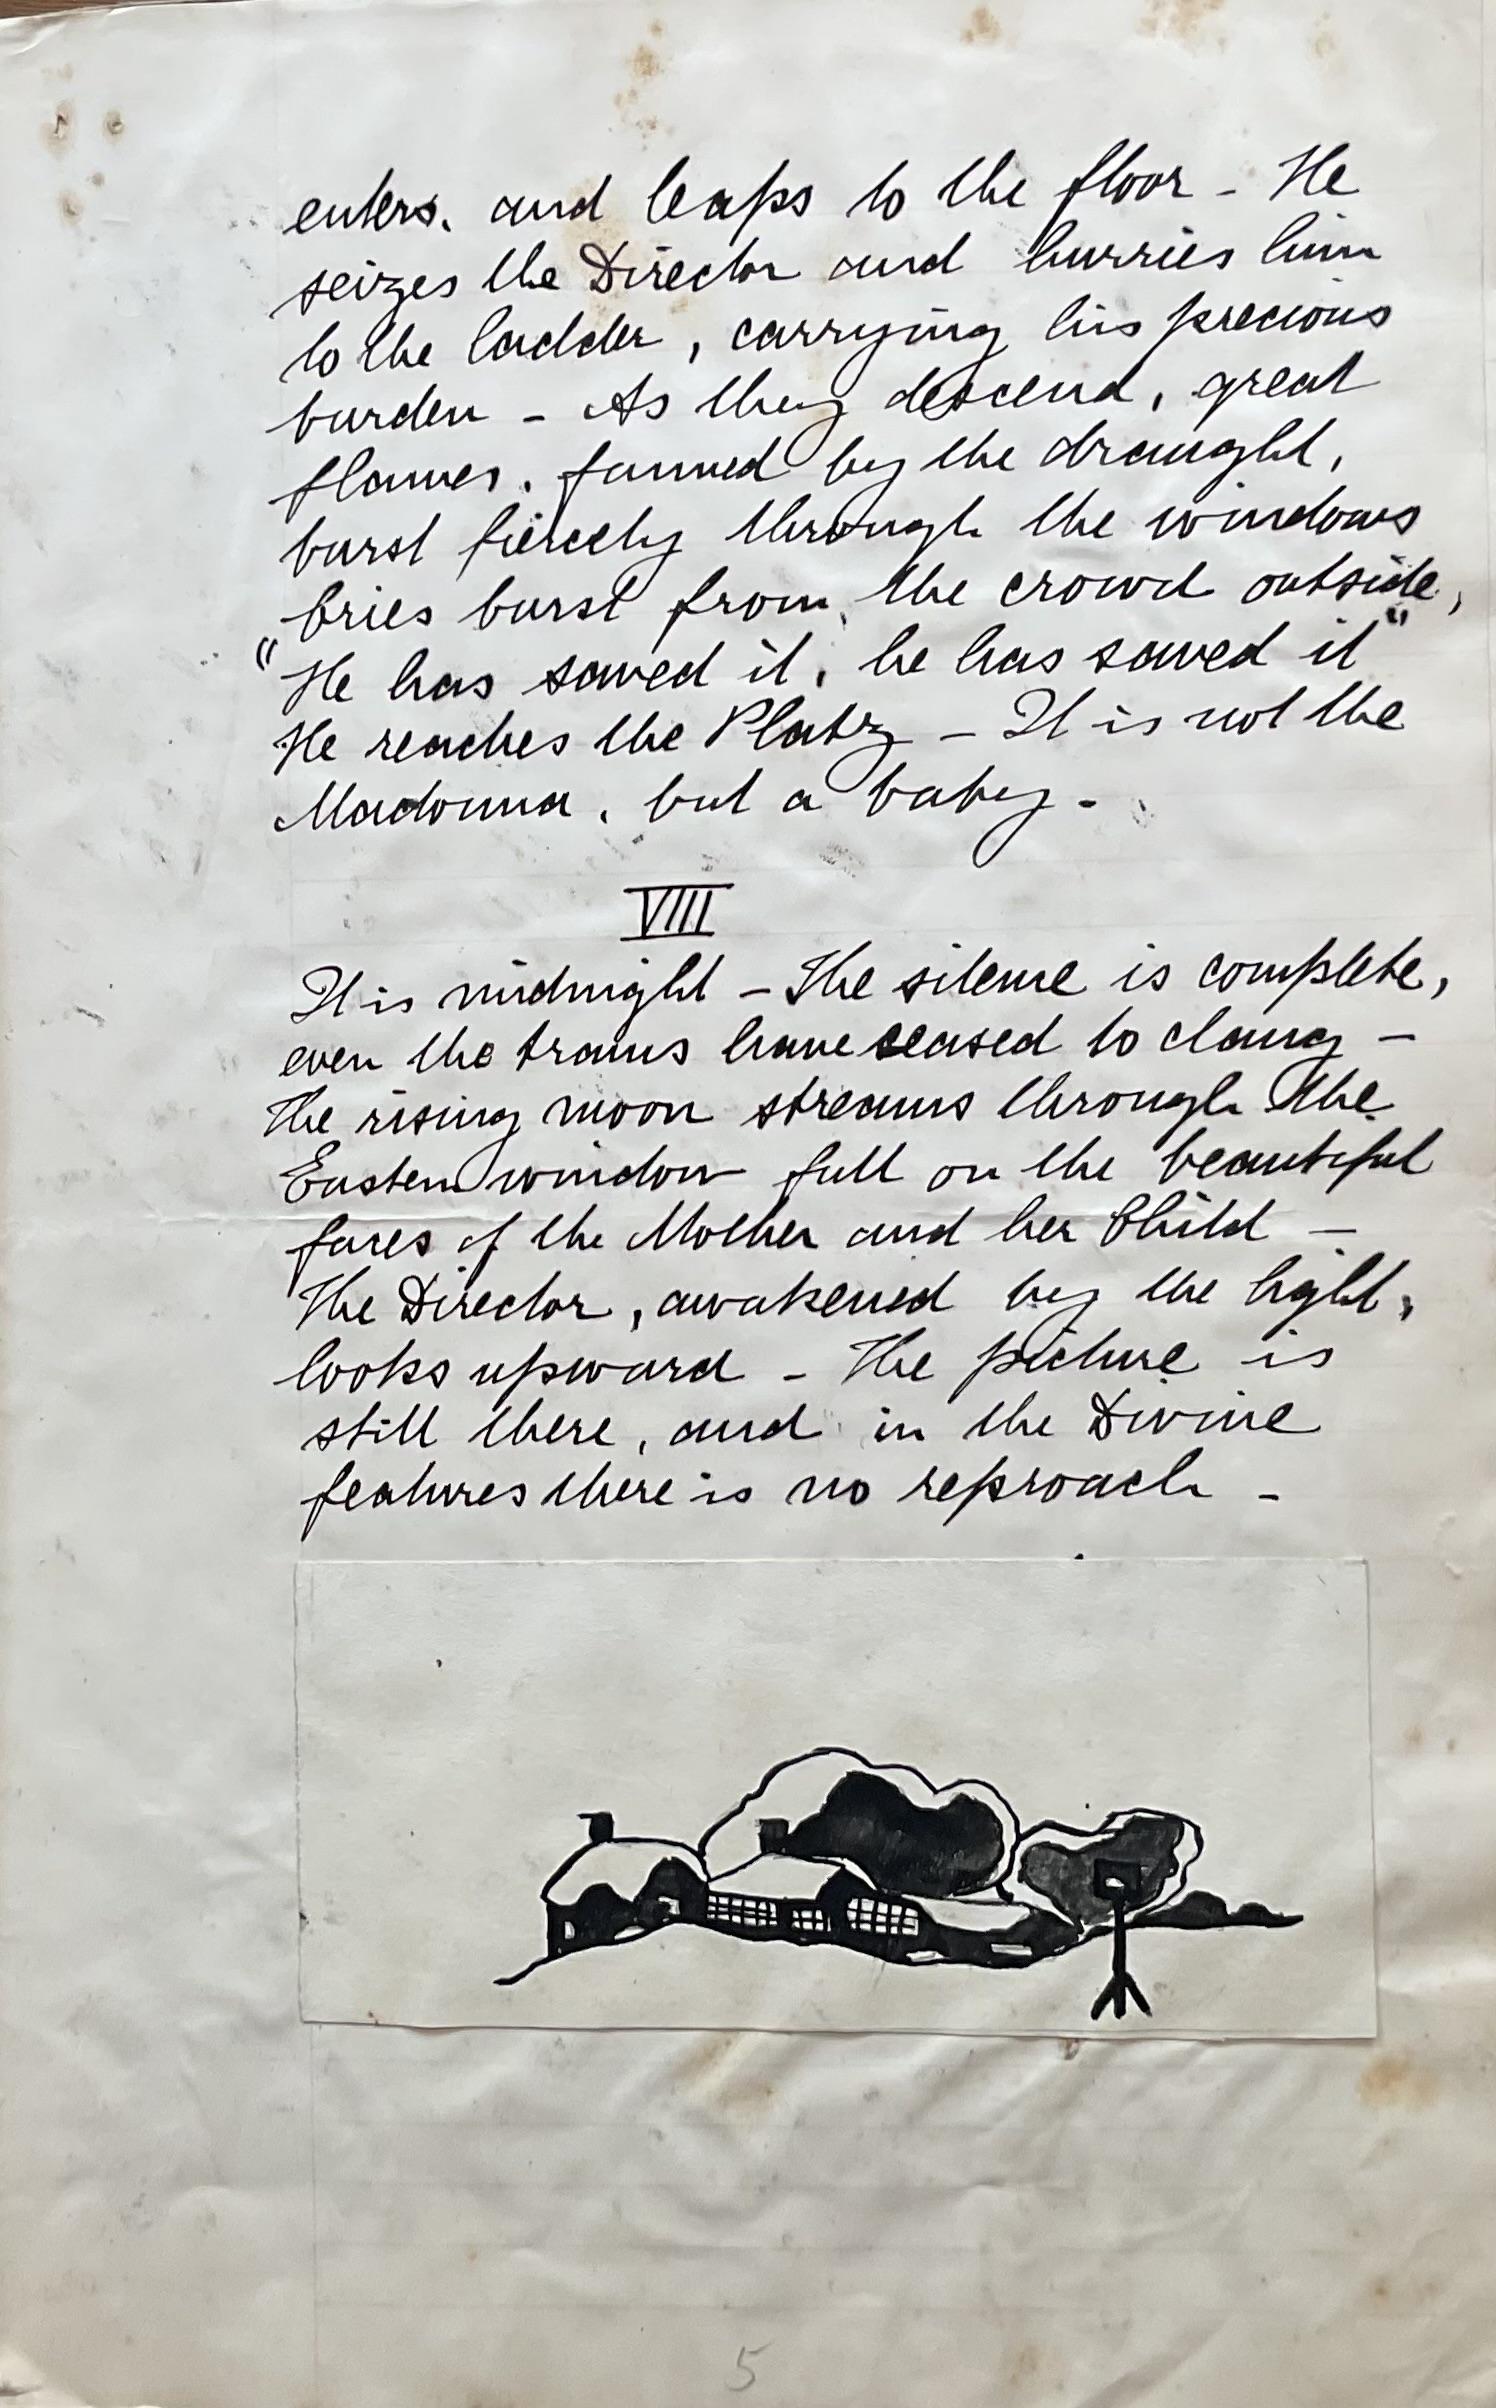 enters, and leaps to the floor - He
seizes the Director and hurries him
to the ladder, carrying his precious
burden - As they descend, great
flames, fanned by the draught,
burst fiercely through the windows
Cries burst from the crowd outside,
"He has saved it, he has saved it"
He reaches the Platz - It is not the
Madonna, but a baby -
VIII
It is midnight - The silence is complete,
even the trams have ceased to clang -
The rising moon streams through the
Eastern window full on the beautiful
faces of the Mother and her Child -
The Director, awakened by the light,
looks upward - The picture is
still there, and in the Divine
features there is no reproach -
5